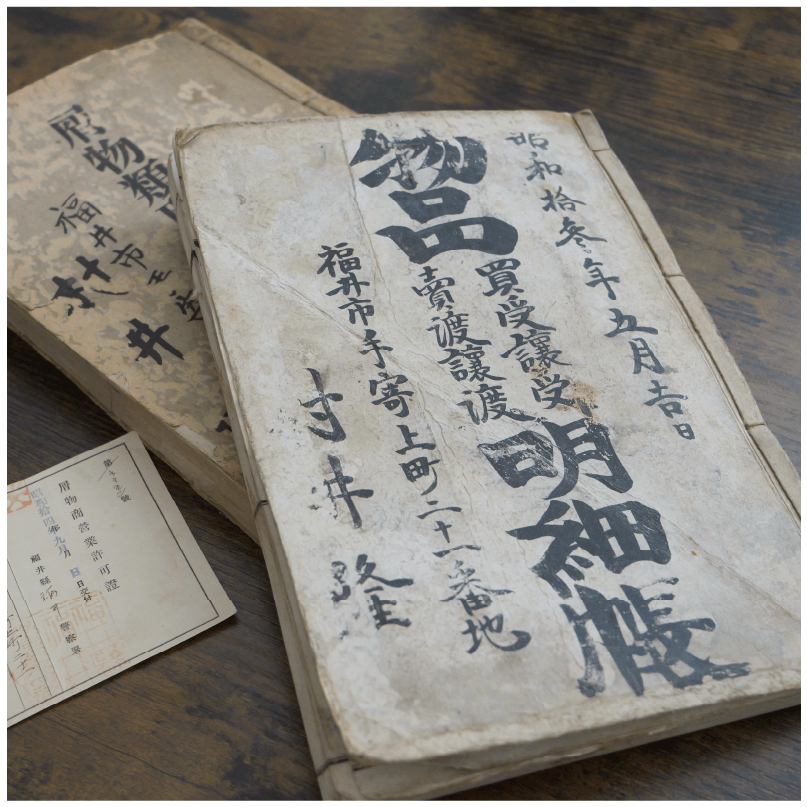 昭和拾参年五月吉日
物品
買受讓受
賣渡讓渡
明細帳
福井市手寄上町二十一番地
村井隆
屑物類
福井市
村井
屑物商営業許可證
昭和拾四年九月 日
福井縣 警察署